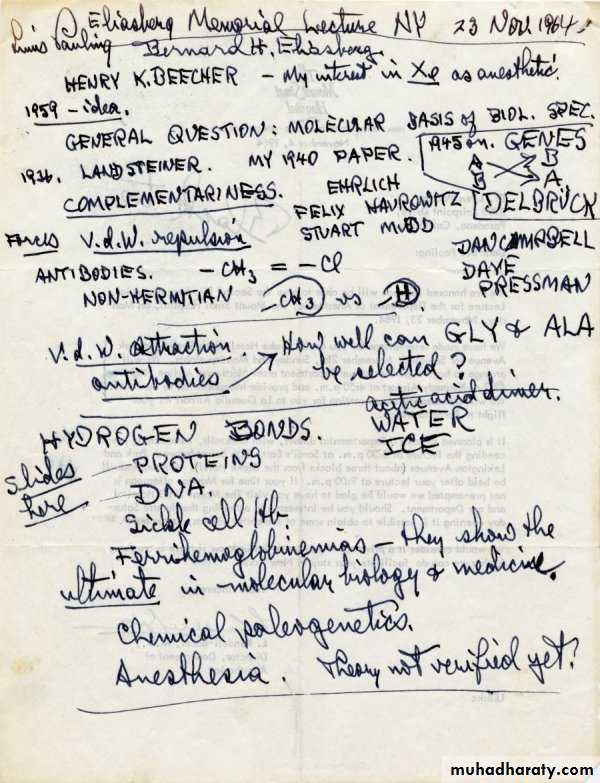 Eliasberg Memorial Lecture NY 23 Nov. 1964
Linus Pauling Bernard H. Eliasberg
HENRY K. BEECHER – My interest in Xe as anesthetic.
1959 – idea.
GENERAL QUESTION: MOLECULAR BASIS of BIOL. SPEC.
1936. LANDSTEINER. MY 1940 PAPER. 1945 on. GENES
A B
B A
COMPLEMENTARINESS. EHRLICH DELBRÜCK
FELIX HAUROWITZ
FORCES V.d.W. repulsion STUART MUDD DAN CAMPBELL
ANTIBODIES. –CH3 = –Cl DAVE PRESSMAN
NON-HERMITIAN –CH3 vs –H.
V.d.W. attraction. How well can GLY & ALA
antibodies. be selected?
acetic acid dimer.
HYDROGEN BONDS. WATER
ICE
Slides here PROTEINS
DNA.
Sickle cell Hb
Ferrihemoglobinemias – they show the
ultimate in molecular biology & medicine.
Chemical paleogenetics.
Anesthesia. Theory not verified yet?
muhadharaty.com